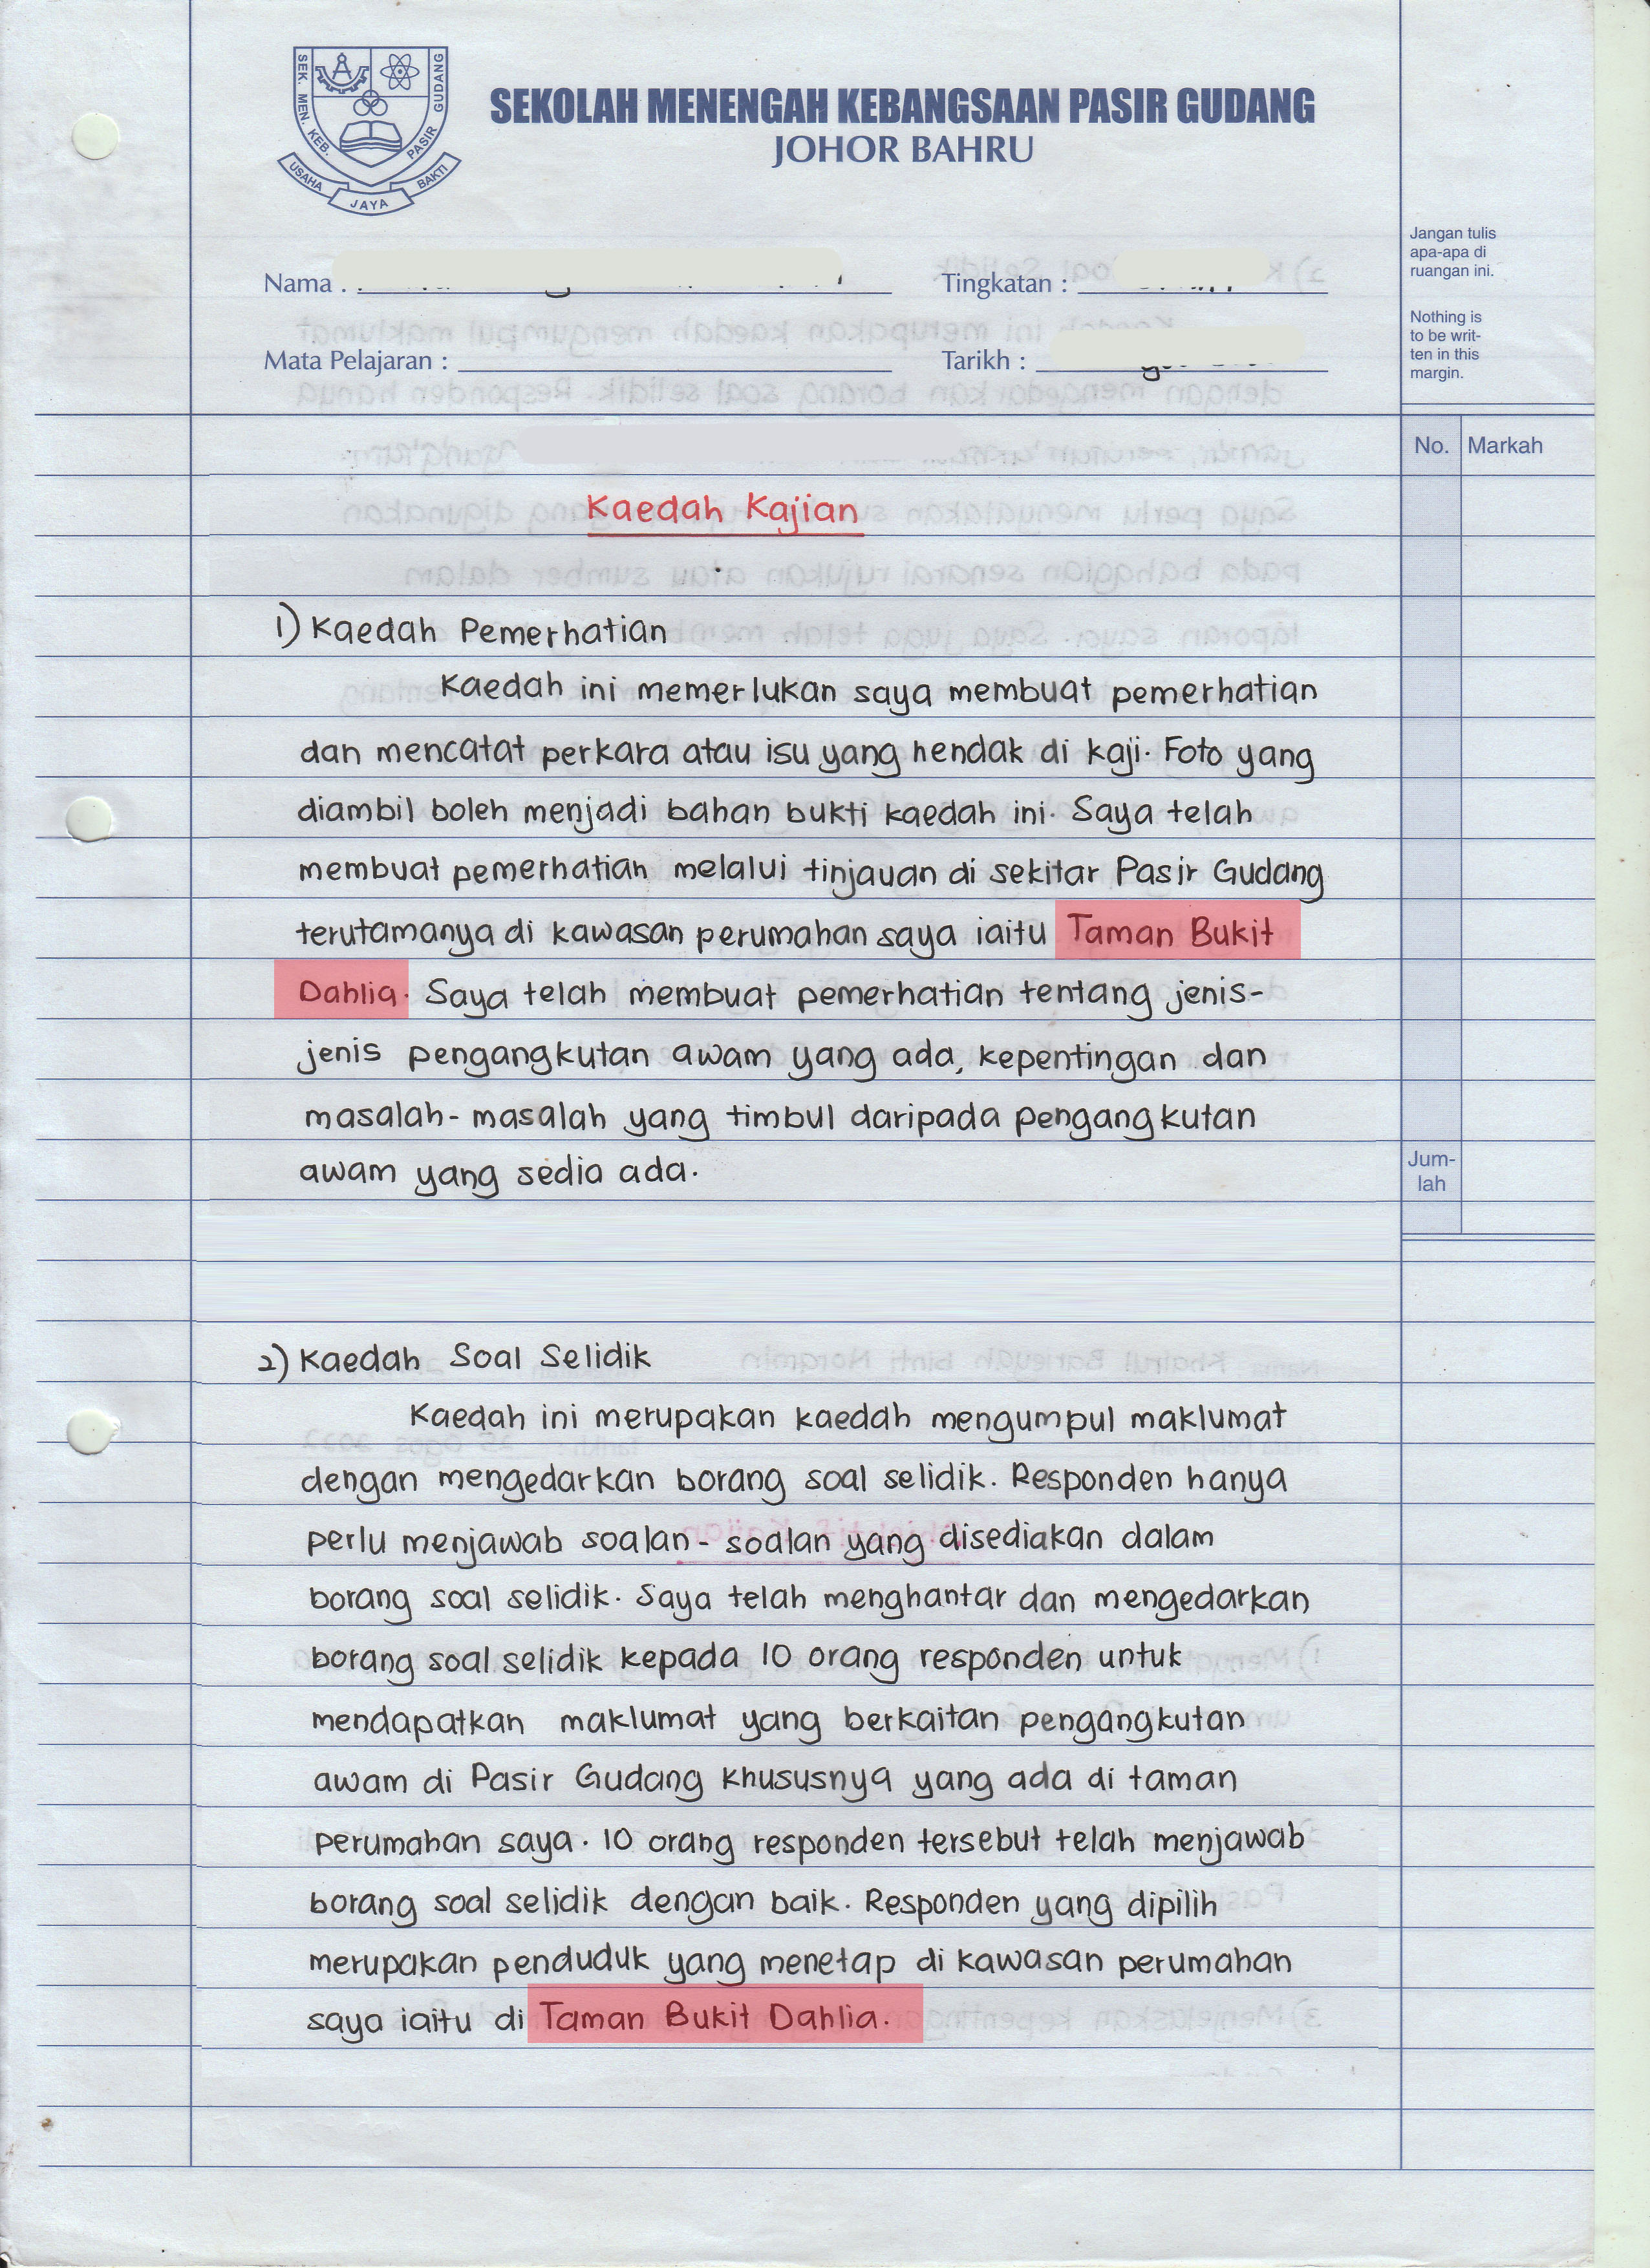 SEK. MEN. KEB. PASIR GUDANG
USAHA JAYA BAKTI
SEKOLAH MENENGAH KEBANGSAAN PASIR GUDANG
JOHOR BAHRU
Jangan tulis
apa-apa di
ruangan ini.
Nama :
Tingkatan :
Nothing is
to be writ-
ten in this
margin.
Mata Pelajaran :
Tarikh :
No. Markah
Kaedah Kajian
1) Kaedah Pemerhatian
Kaedah ini memerlukan saya membuat pemerhatian
dan mencatat perkara atau isu yang hendak di kaji. Foto yang
diambil boleh menjadi bahan bukti kaedah ini. Saya telah
membuat pemerhatian melalui tinjauan di sekitar Pasir Gudang
terutamanya di kawasan perumahan saya iaitu Taman Bukit
Dahlia. Saya telah membuat pemerhatian tentang jenis-
jenis pengangkutan awam yang ada, kepentingan dan
masalah-masalah yang timbul daripada pengangkutan
awam yang sedia ada.
Jum-
lah
2) Kaedah Soal Selidik
Kaedah ini merupakan kaedah mengumpul maklumat
dengan mengedarkan borang soal selidik. Responden hanya
perlu menjawab soalan-soalan yang disediakan dalam
borang soal selidik. Saya telah menghantar dan mengedarkan
borang soal selidik kepada 10 orang responden untuk
mendapatkan maklumat yang berkaitan pengangkutan
awam di Pasir Gudang khususnya yang ada di taman
perumahan saya. 10 orang responden tersebut telah menjawab
borang soal selidik dengan baik. Responden yang dipilih
merupakan penduduk yang menetap di kawasan perumahan
saya iaitu di Taman Bukit Dahlia.